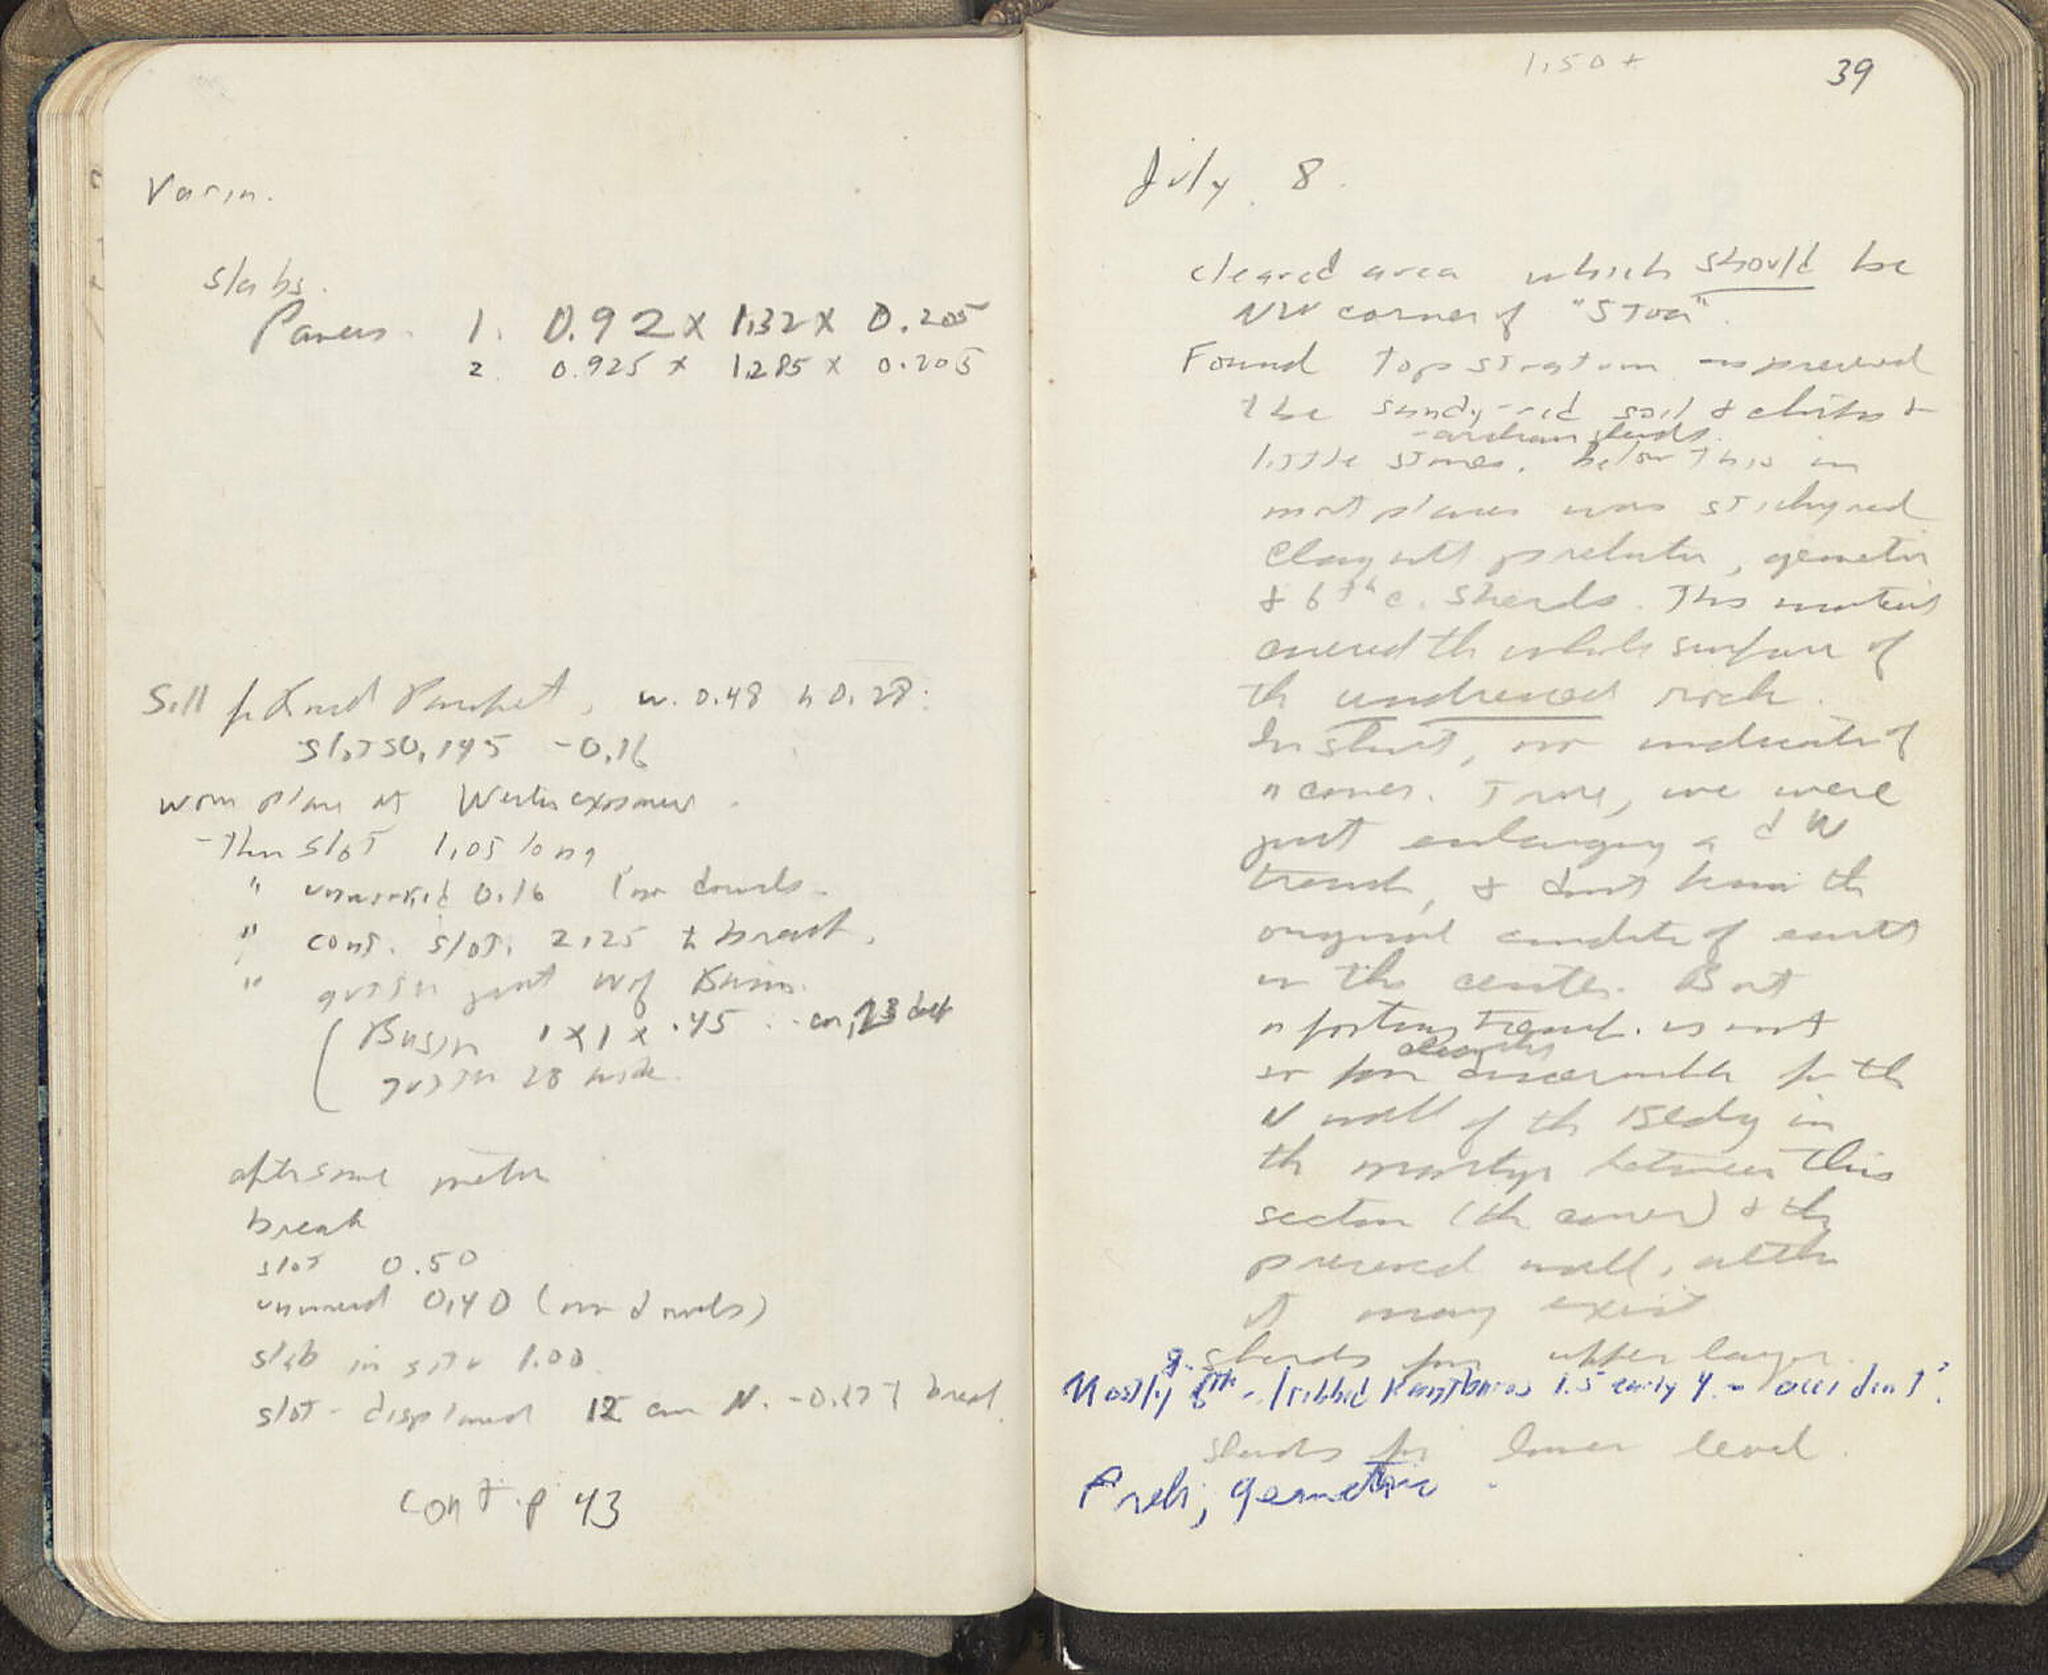 Varia.
slabs.
Pavers. 1. 0.92 x 1.32 x 0.205
2. 0.925 x 1.285 x 0.205
Sill for Parapet, w. 0.48 h 0.28.
slots 0.145 - 0.16
worn place at Western
- Then slot 1.05 long
" unworked 0.16 (no dowels -
" cont. slot. 2.25 to break.
" gutter just W of Basin.
(Basin 1 x 1 x .45 .23 deep
gutter 28 wide.
after some meters
break
slot 0.50
0.40 (no dowels)
slab in situ 1.00.
slot - displaced 12 cm N. - 0.27 + break.
cont. p 43
1.50 +
39
July 8.
cleared area which should be
NW corner of "Stoa".
Found top stratum as
the sandy-red soil & chips &
- archaic sherds.
little stones. below this in
most places was sticky red
clay with , geometric
& 6th c. sherds. This material
covered the whole surface of
the undressed rock.
In short, no indication of
a corner. True, we were
just enlarging a d W
trench, & don't know the
original condition of earth
in the center. But
a trench is not
so far discernible for the
N wall of the Bldg in
the between this
section (the corner) & the
preserved wall, altho
it may exist
sherds for upper layer.
Mostly 5th - 1 ribbed Kantharos 1.5 early 4. - accident?
sherds for lower level.
Preh; geometric